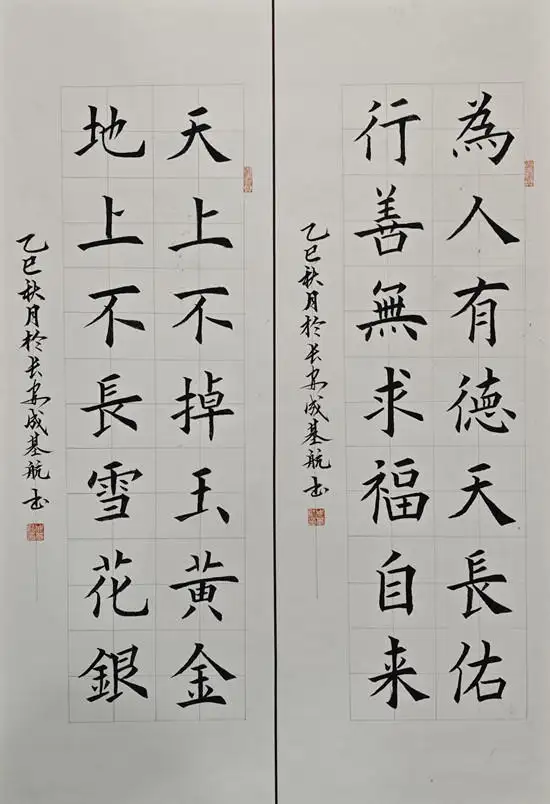 為人有德天長佑
行善無求福自来
乙巳秋月於长安成基航书
天上不掉玉黄金
地上不長雪花銀
乙巳秋月於长安成基航书